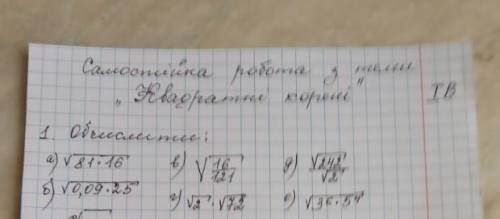 Самостійка робота з теми
„Квадратні корені" ІВ
1. Обчислити:
а) √81·16 в) √16/121 д) √242/√2
б) √0,09·25 г) √2·√72 е) √36·54